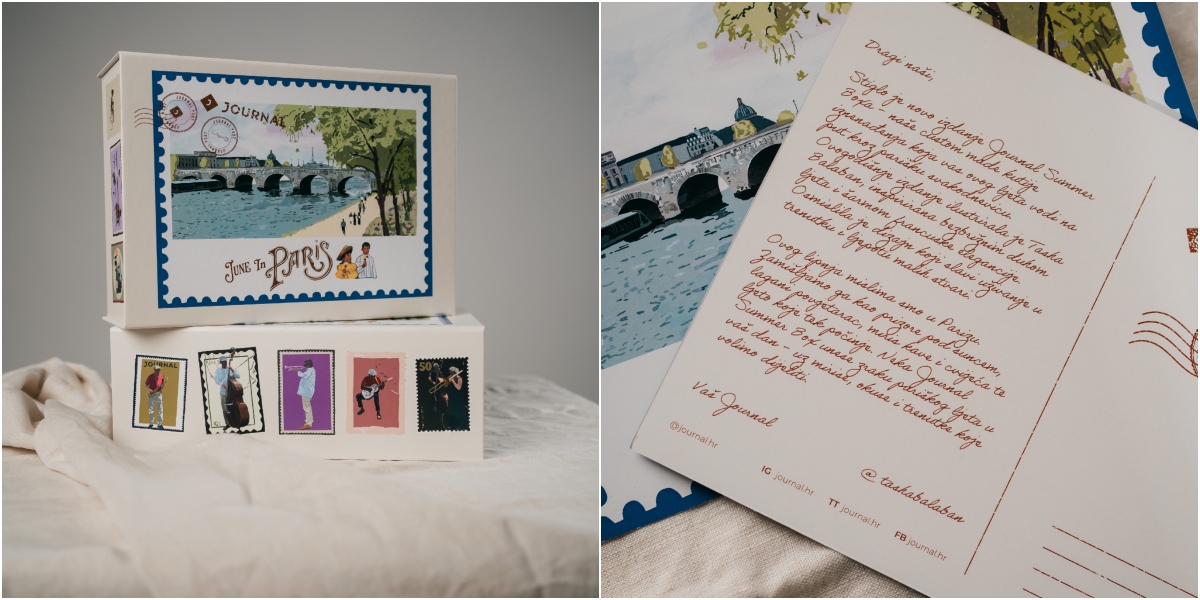 JOURNAL
June In PARIS
JOURNAL
50
Dragi naši,
Stiglo je novo izdanje Journal Summer
Boxa - naše custom made kutije
iznenađenja koja vas ovog ljeta vodi na
put kroz parišku svakodnevicu.
Ovogodišnje izdanje ilustrirala je Tasha
Balaban, inspirirana bezbrižnim duhom
ljeta i šarmom francuske elegancije.
Osmislila je dizajn koji slavi uživanje u
trenutku i ljepotu malih stvari.
Ovog lipnja mislima smo u Parizu.
Zamišljamo ga kroz prizore pod suncem,
lagani povjetarac, miris kave i cvijeća te
ljeto koje tek počinje. Neka Journal
Summer Box unese zraku pariškog ljeta u
vaš dan - uz mirise, okuse i trenutke koje
volimo dijeliti.
Vaš Journal
@journal.hr
@ tashabalaban
IG journal.hr
TT journal.hr
FB journal.hr